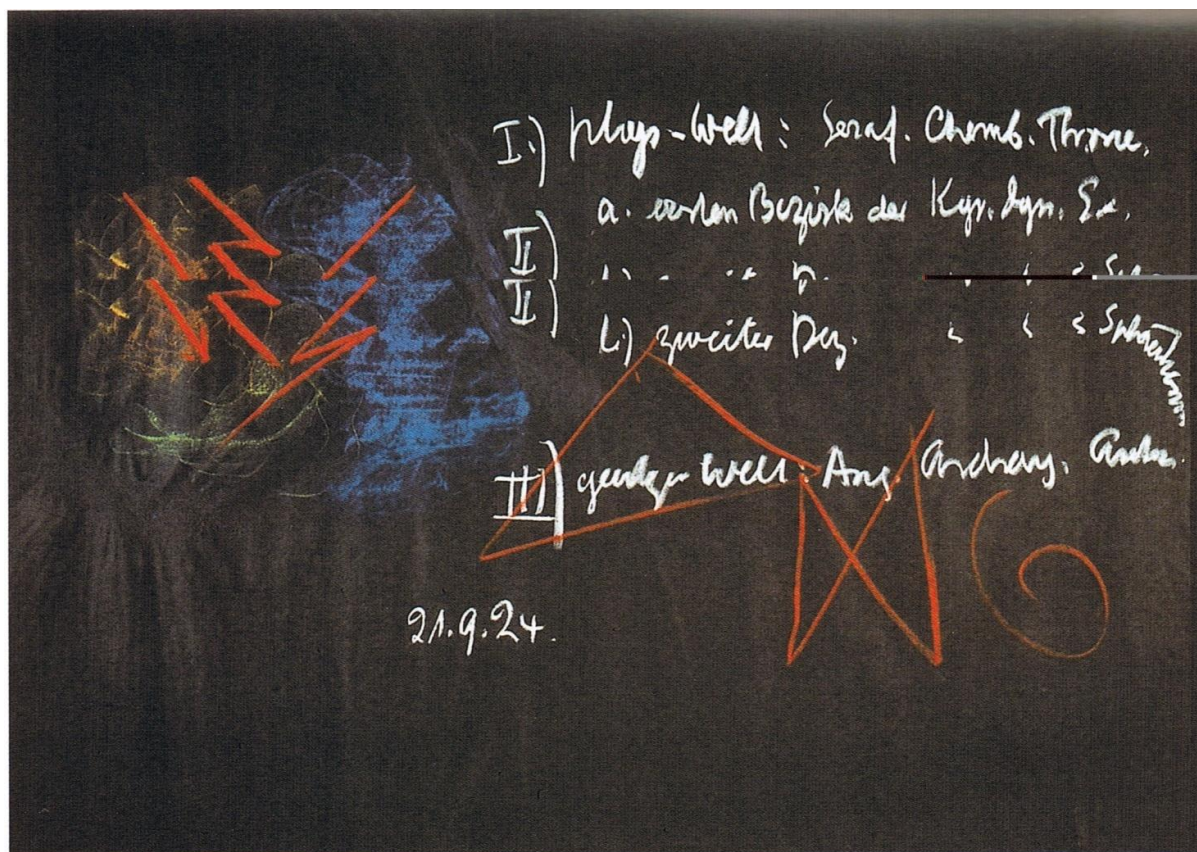 I.) phys-Welt : Seraf. Cherub. Throne.
a. ersten Bezirk der Kyr. Dyn. Ex.
II)
II) b.) zweiter Bez. " " " Sphärenharm
III) geistige Welt : Ang. Archang. Archai.
21.9.24.